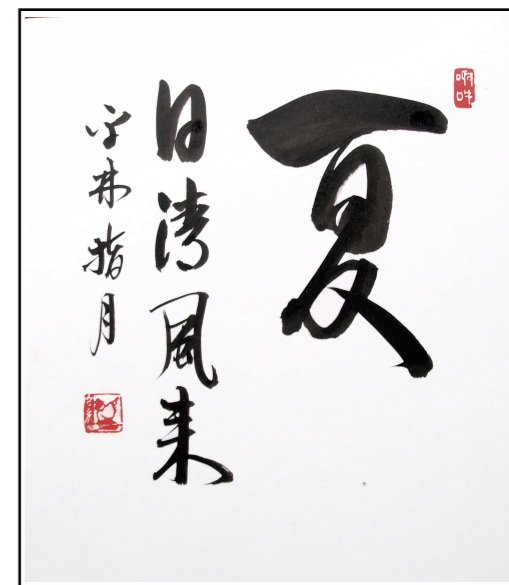 夏
日清風来
林指月